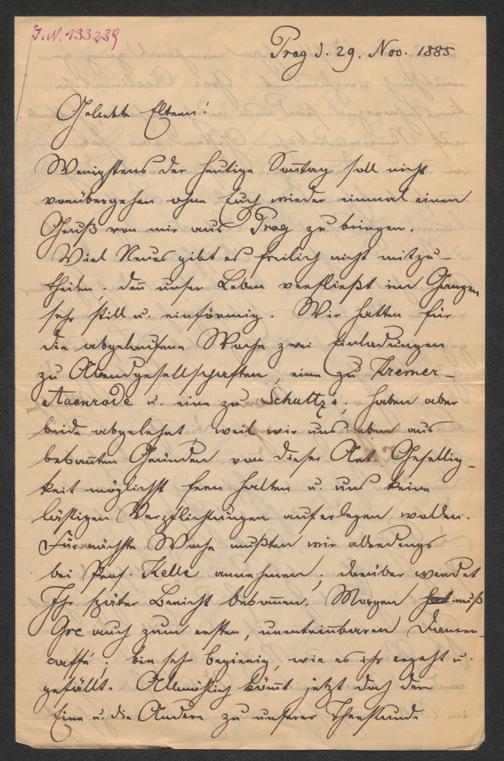 J.N. 133239
Prag d. 29. Nov. 1885
Geliebte Eltern!
Wenigstens der heutige Sonntag soll nicht
vorübergehen ohne Euch wieder einmal einen
Gruß von mir aus Prag zu bringen.
Viel Neues gibt es freilich nicht mitzu-
theilen. deñ unser Leben verfließt im Ganzen
sehr still u. einförmig. Wir hatten für
die abgelaufene Woche zwei Einladungen
zu Abendgesellschaften, eine zu Kremer-
Auenrode u. eine zu Schultze, haben aber
beide abgelehnt weil wir uns eben aus
bekañten Gründen von dieser Art Gesellig-
keit möglichst fern halten u. uns keine
lästigen Verpflichtungen auferlegen wollen.
Für nächste Woche mußten wir allerdings
bei Prof. Kelle annehmen, darüber werdet
Ihr später Bericht bekom̅en. Morgen muß
auch zum ersten, Damen-
caffé; bin sehr begierig, wie es ihr ergeht u.
gefällt. Allmählich kom̅t jetzt doch der
Eine u. die Andere zu unserer Theestunde